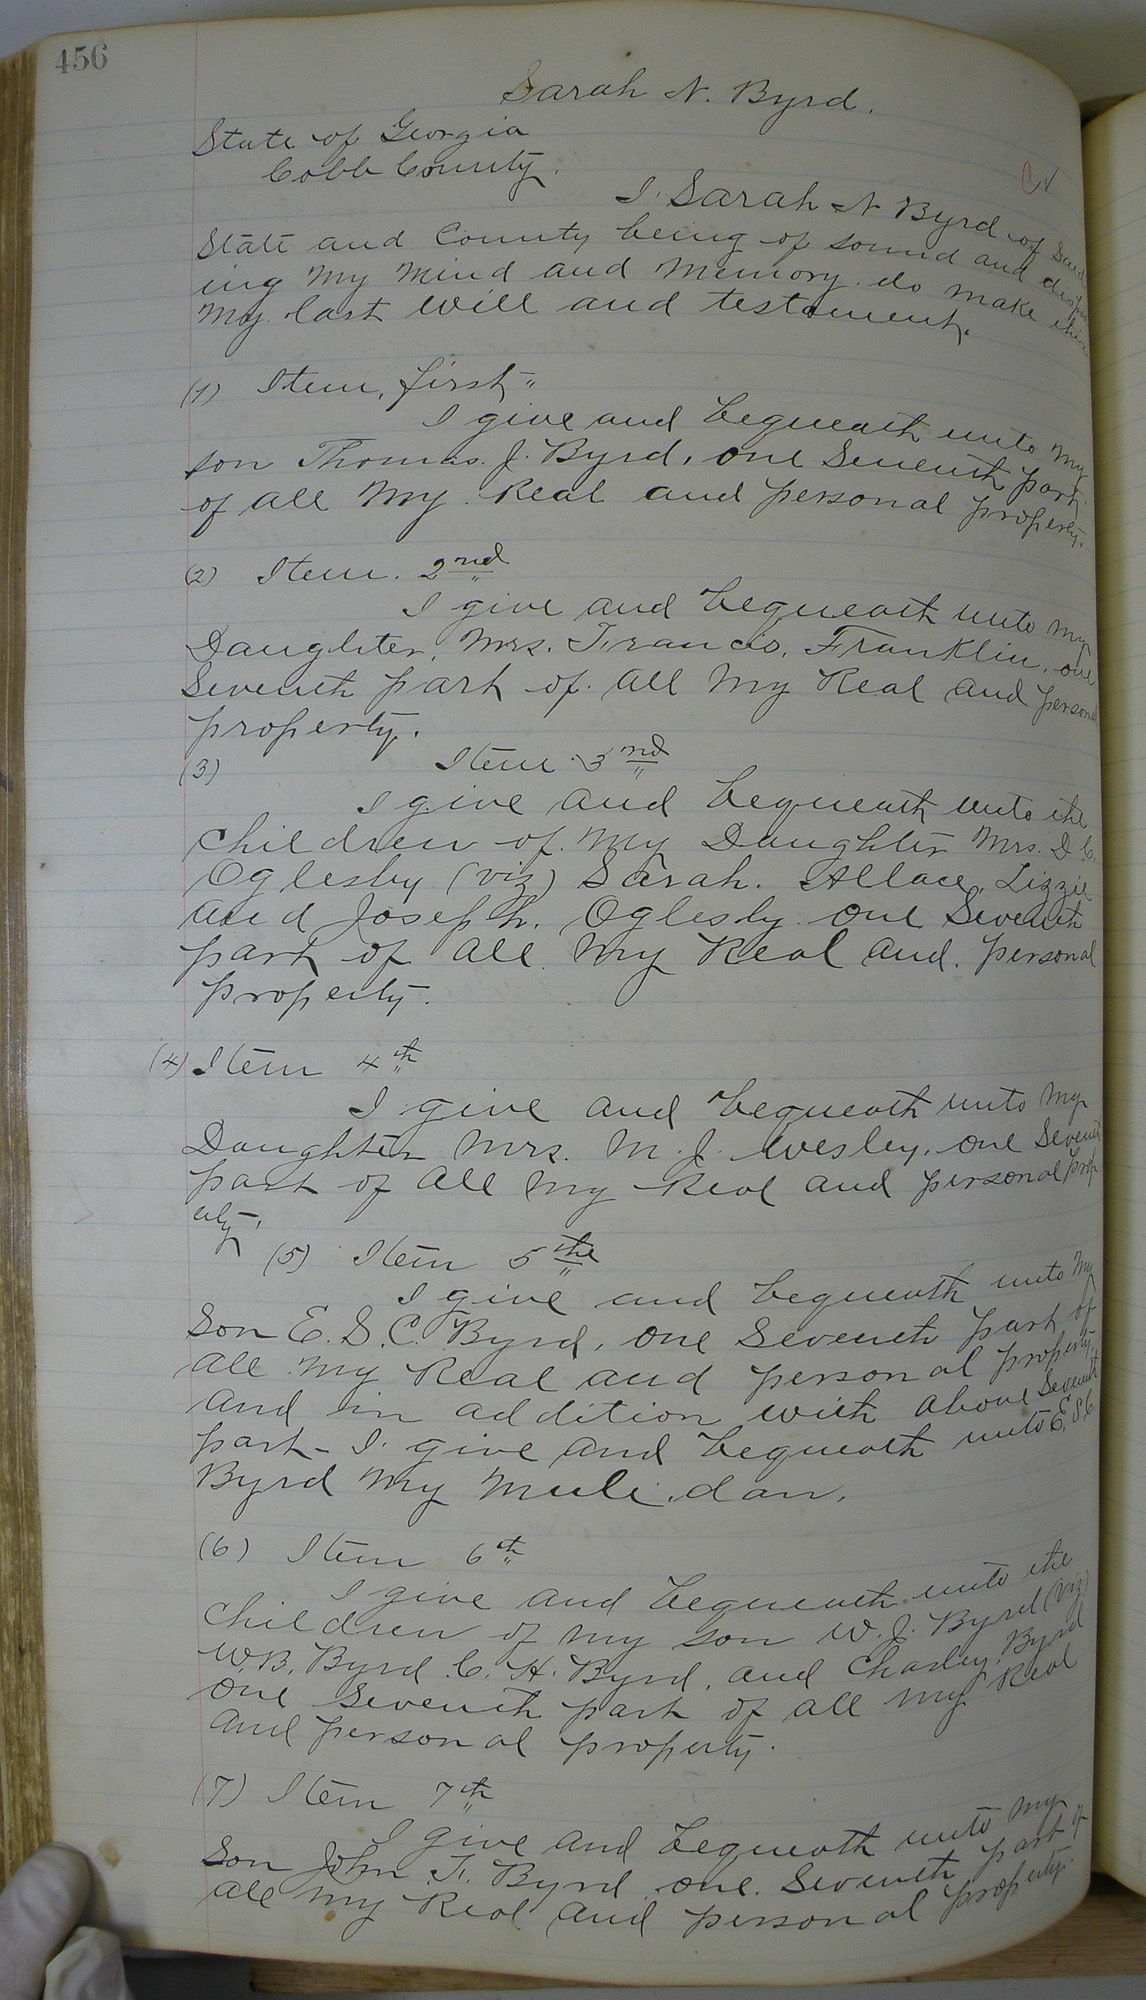 456
Sarah N. Byrd.
State of Georgia
Cobb County.
I. Sarah N Byrd of said
State and County being of sound and dispos
ing my mind and memory. do make this
my last will and testament.
(1) Item, first,"
I give and bequeath unto my
son Thomas. J. Byrd, one Seventh part
of all my Real and personal property.
(2) Item. 2nd
I give and bequeath unto my
Daughter, Mrs. Francis, Franklin, one
Seventh part of. all my Real and personal
property.
(3) Item 3nd
I give and bequeath unto the
children of. my Daughter Mrs. D C.
Oglesby (viz) Sarah. Allace, Lizzie
and Joseph. Oglesby one Seventh
part of all my Real and. personal
property.
(4) Item 4th
I give and bequeath unto my
Daughter Mrs. M. J. Wesley, one Seventh
part of all my Real and personal prop
erty.
(5) Item 5the
I give and bequeath unto my
Son E. S. C. Byrd, one Seventh part of
all my Real and personal property,
and in addition with above Seventh
part - I. give and bequeath unto E. S. C.
Byrd my mule. dan.
(6) Item 6th
I give and bequeath unto the
children of my son W. J. Byrd (viz)
W. B. Byrd C. H. Byrd, and Charley Byrd
one Seventh part of all my Real
and personal property.
(7) Item 7th
I give and bequeath unto my
Son John. F. Byrd one. Seventh part of
all my Real and personal property.